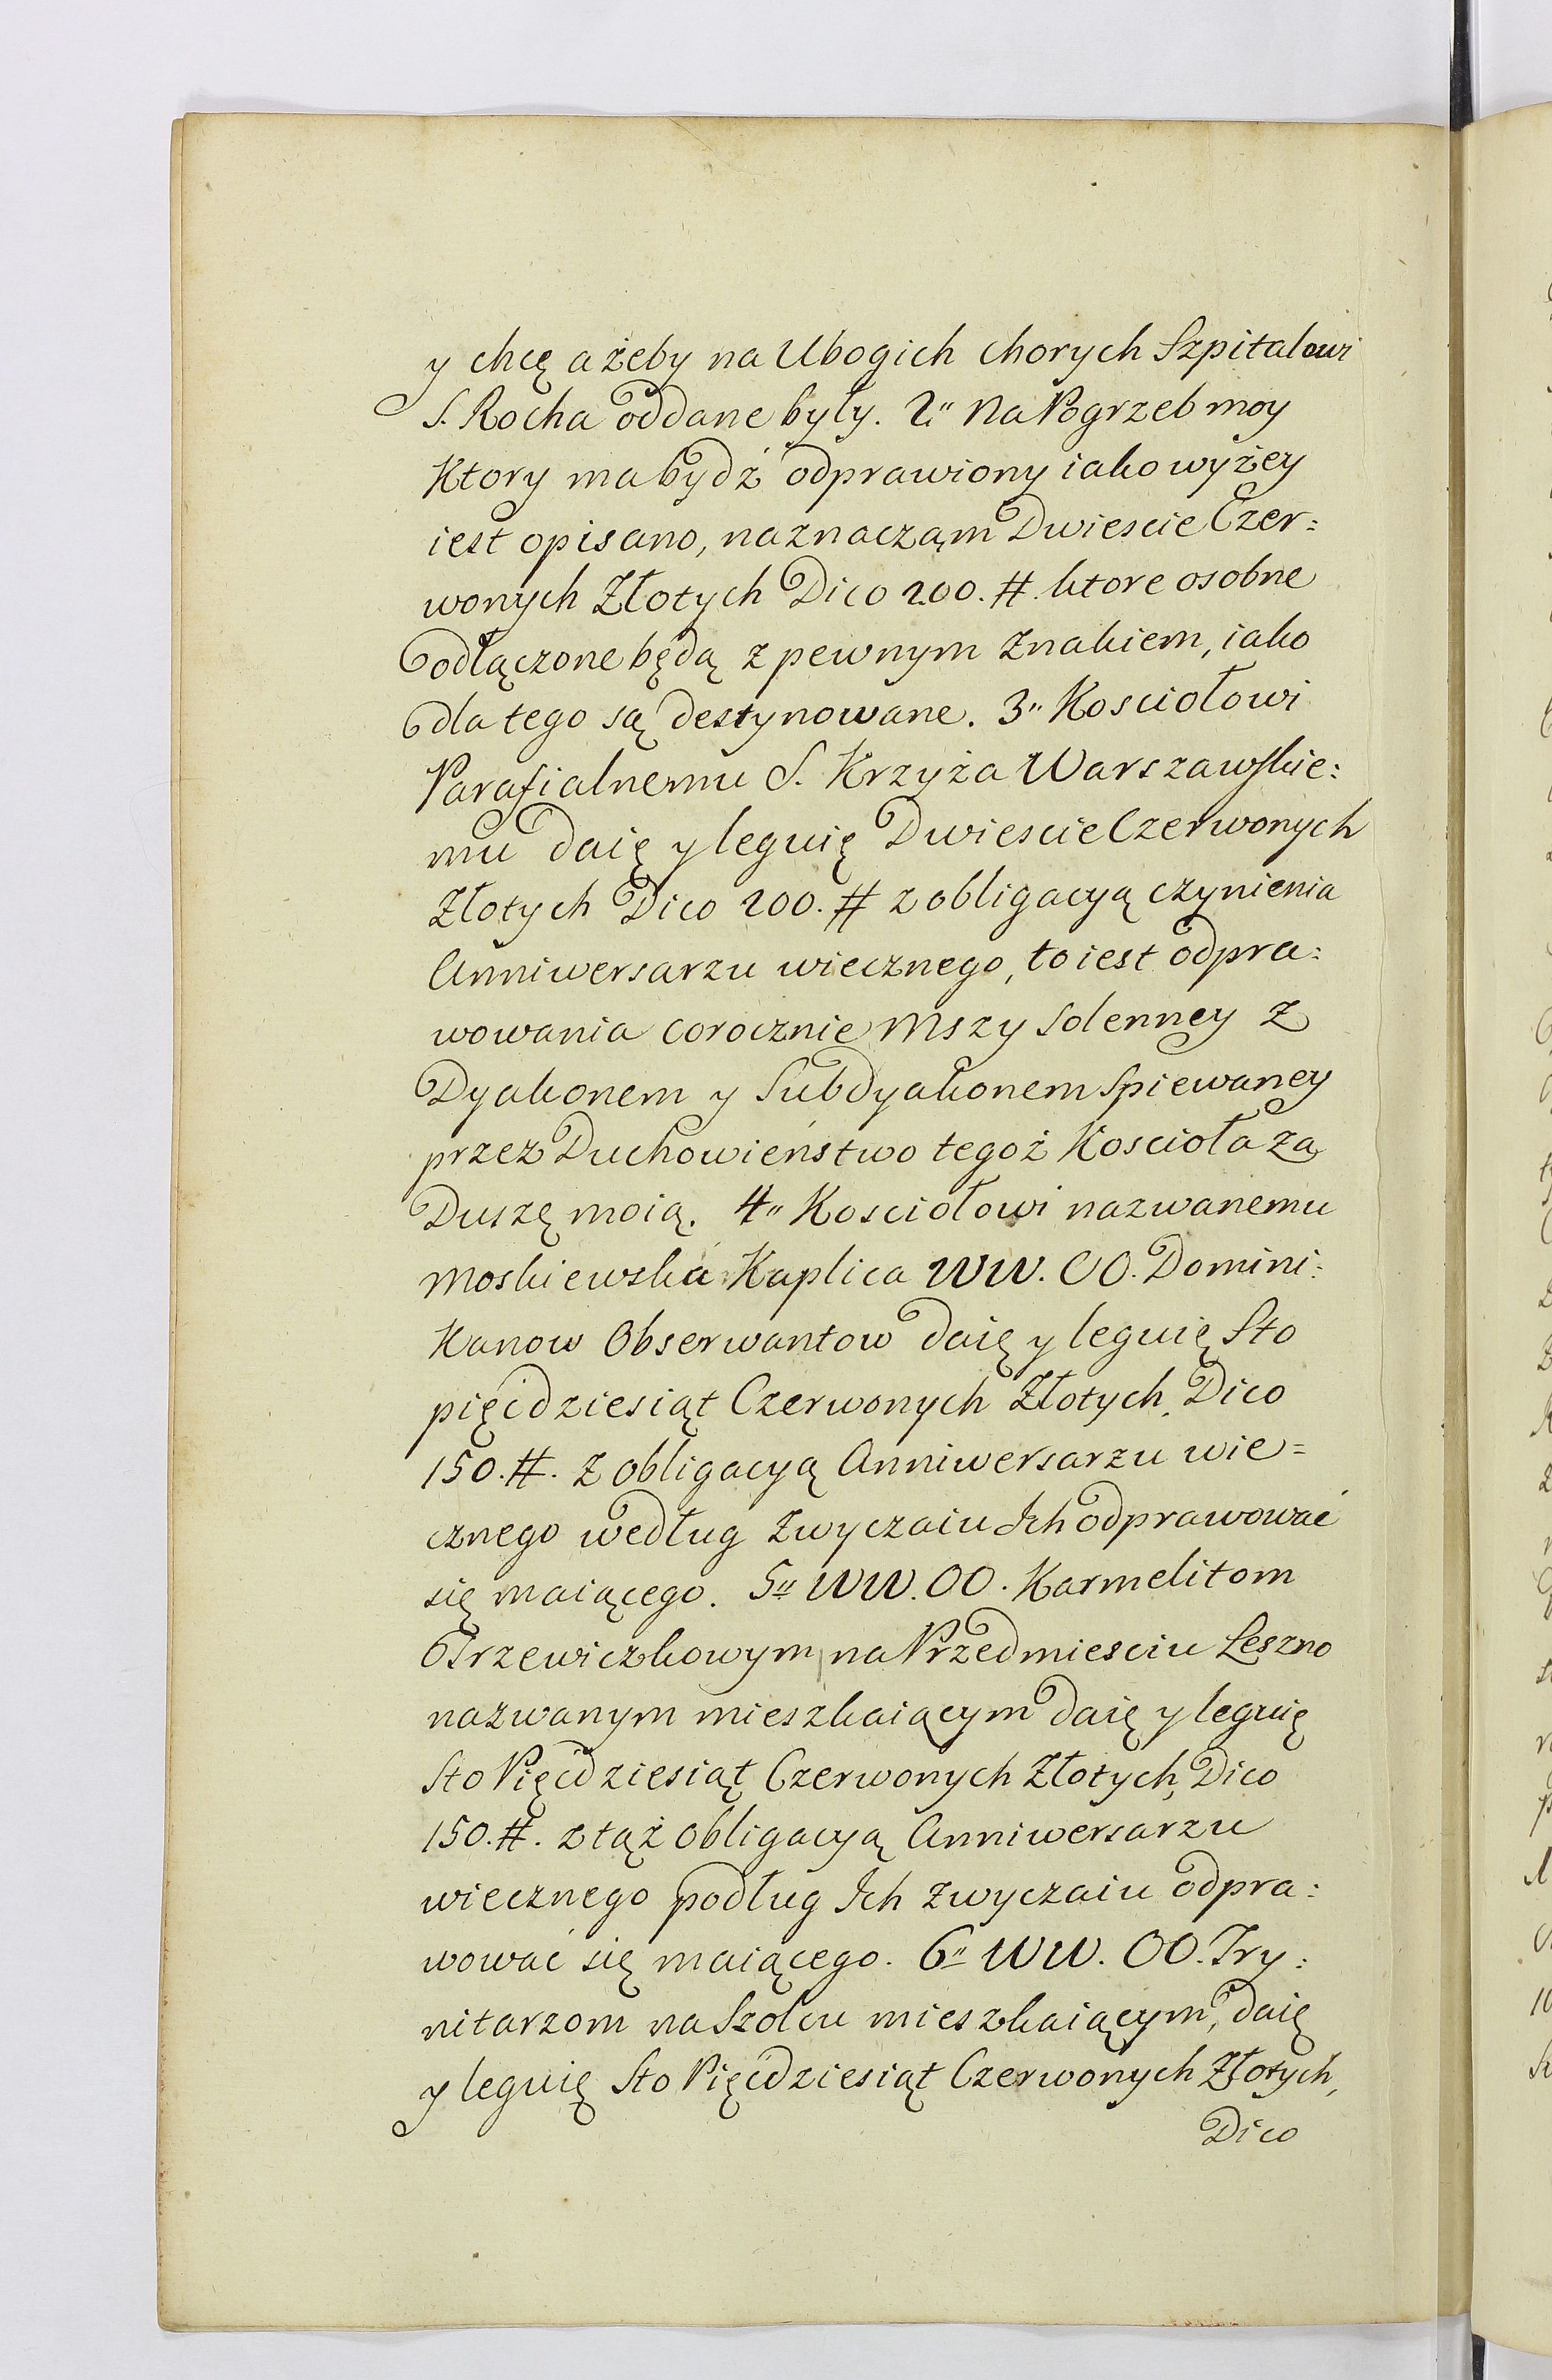 y chcę ażeby na Ubogich chorych Szpitalowi
S. Rocha oddane były. 2" Na Pogrzeb moy
Ktory ma bydź odprawiony iako wyżey
iest opisano, naznacząm Dwiescie Czer:
wonych Złotych Dico 200. #. ktore osobne
odłączone będą z pewnym Znakiem, iako
dla tego są destynowane. 3" Kosciołowi
Parafialnemu S. Krzyża Warszawskie:
mu daię y leguię Dwiescie Czerwonych
Złotych Dico 200. # z obligacyą czynienia
Anniwersarzu wiecznego, to iest odpra:
wowania corocznie Mszy Solenney z
Dyakonem y Subdyakonem Spiewaney
przez Duchowieństwo tegoż Kościoła za
Duszę moią. 4" Kosciołowi nazwanemu
Moskiewska Kaplica WW. OO. Domini:
Kanow Obserwantow daię y leguię Sto
pięćdziesiąt Czerwonych Złotych, Dico
150. #. z obligacyą Anniwersarzu wie=
cznego według zwyczaiu Ich odprawować
się maiącego. 5" WW. OO. Karmelitom
Trzewiczkowym, na Przedmiesciu Leszno
nazwanym mieszkaiącym daię y leguię
Sto Pięćdziesiąt Czerwonych Złotych, Dico
150. #. z tąż obligacyą Anniwersarzu
wiecznego podług Ich zwyczaiu odpra:
wować się maiącego. 6" WW. OO. Try:
nitarzom na Szolcu mieszkaiącym, daię
y leguię Sto Pięćdziesiąt Czerwonych Złotych,
Dico